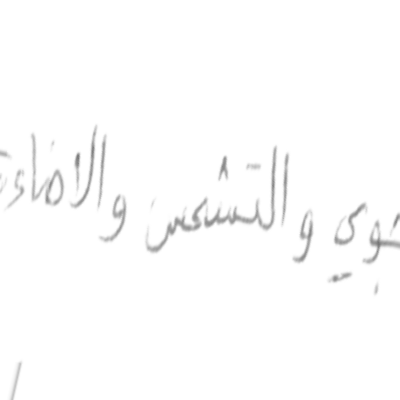 جوي والتشمس والاضاءة